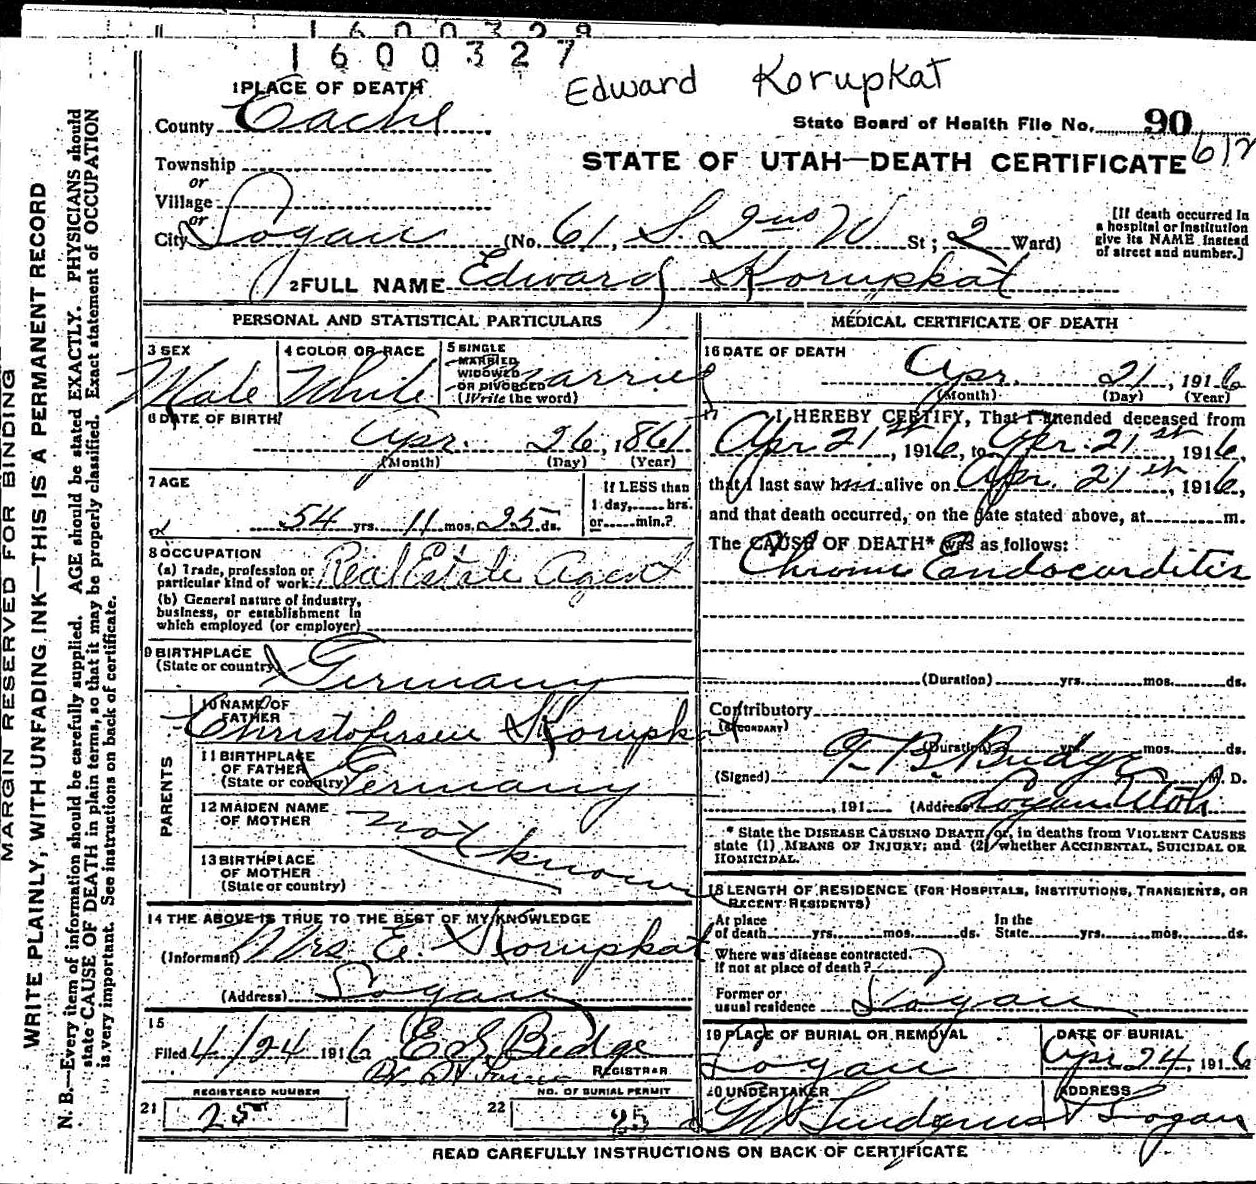 1600328
1600327
Edward Korupkat
1 PLACE OF DEATH
County Cache
State Board of Health File No. 90
612
Township
or
Village
or
STATE OF UTAH—DEATH CERTIFICATE
City Logan (No. 61, S. 2nd W St; 2 Ward)
[If death occurred in
a hospital or institution
give its NAME instead
of street and number.]
2 FULL NAME Edward Korupkat
MARGIN RESERVED FOR BINDING
WRITE PLAINLY, WITH UNFADING INK—THIS IS A PERMANENT RECORD
N. B.—Every item of information should be carefully supplied. AGE should be stated EXACTLY. PHYSICIANS should
state CAUSE OF DEATH in plain terms, so that it may be properly classified. Exact statement of OCCUPATION
is very important. See instructions on back of certificate.
PERSONAL AND STATISTICAL PARTICULARS
3 SEX
Male
4 COLOR OR RACE
White
5 SINGLE
MARRIED
WIDOWED
OR DIVORCED
(Write the word)
Married
6 DATE OF BIRTH
Apr. 26, 1861
(Month) (Day) (Year)
7 AGE
54 yrs. 11 mos. 25 ds.
If LESS than
1 day, hrs.
or min.?
8 OCCUPATION
(a) Trade, profession or
particular kind of work Real Estate Agent
(b) General nature of industry,
business, or establishment in
which employed (or employer)
9 BIRTHPLACE
(State or country) Germany
PARENTS
10 NAME OF
FATHER
Korupkat
11 BIRTHPLACE
OF FATHER
(State or country) Germany
12 MAIDEN NAME
OF MOTHER
not known
13 BIRTHPLACE
OF MOTHER
(State or country)
14 THE ABOVE IS TRUE TO THE BEST OF MY KNOWLEDGE
(Informant) Mrs E. Korupkat
(Address) Logan
15
Filed 4/24 1916 E S Budge
REGISTRAR
REGISTERED NUMBER
21 25
NO. OF BURIAL PERMIT
22 25
MEDICAL CERTIFICATE OF DEATH
16 DATE OF DEATH
Apr. 21, 1916
(Month) (Day) (Year)
17 I HEREBY CERTIFY, That I attended deceased from
Apr 21st, 1916, to Apr. 21st, 1916,
that I last saw him alive on Apr. 21th, 1916,
and that death occurred, on the date stated above, at m.
The CAUSE OF DEATH* was as follows:
Chronic Endocarditis
(Duration) yrs. mos. ds.
Contributory
(SECONDARY)
(Duration) yrs. mos. ds.
(Signed) T B Budge M. D.
, 191 (Address) Logan Utah
* State the DISEASE CAUSING DEATH, or, in deaths from VIOLENT CAUSES
state (1) MEANS OF INJURY; and (2) whether ACCIDENTAL, SUICIDAL OR
HOMICIDAL.
18 LENGTH OF RESIDENCE (FOR HOSPITALS, INSTITUTIONS, TRANSIENTS, OR
RECENT RESIDENTS)
At place
of death yrs. mos. ds.
In the
State yrs. mos. ds.
Where was disease contracted.
If not at place of death?
Former or
usual residence Logan
19 PLACE OF BURIAL OR REMOVAL
Logan
DATE OF BURIAL
Apr 24, 1916
20 UNDERTAKER
ADDRESS
Logan
READ CAREFULLY INSTRUCTIONS ON BACK OF CERTIFICATE